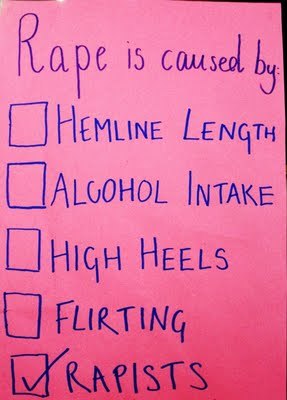 Rape is caused by:
HEMLINE LENGTH
ALCOHOL INTAKE
HIGH HEELS
FLIRTING
RAPISTS